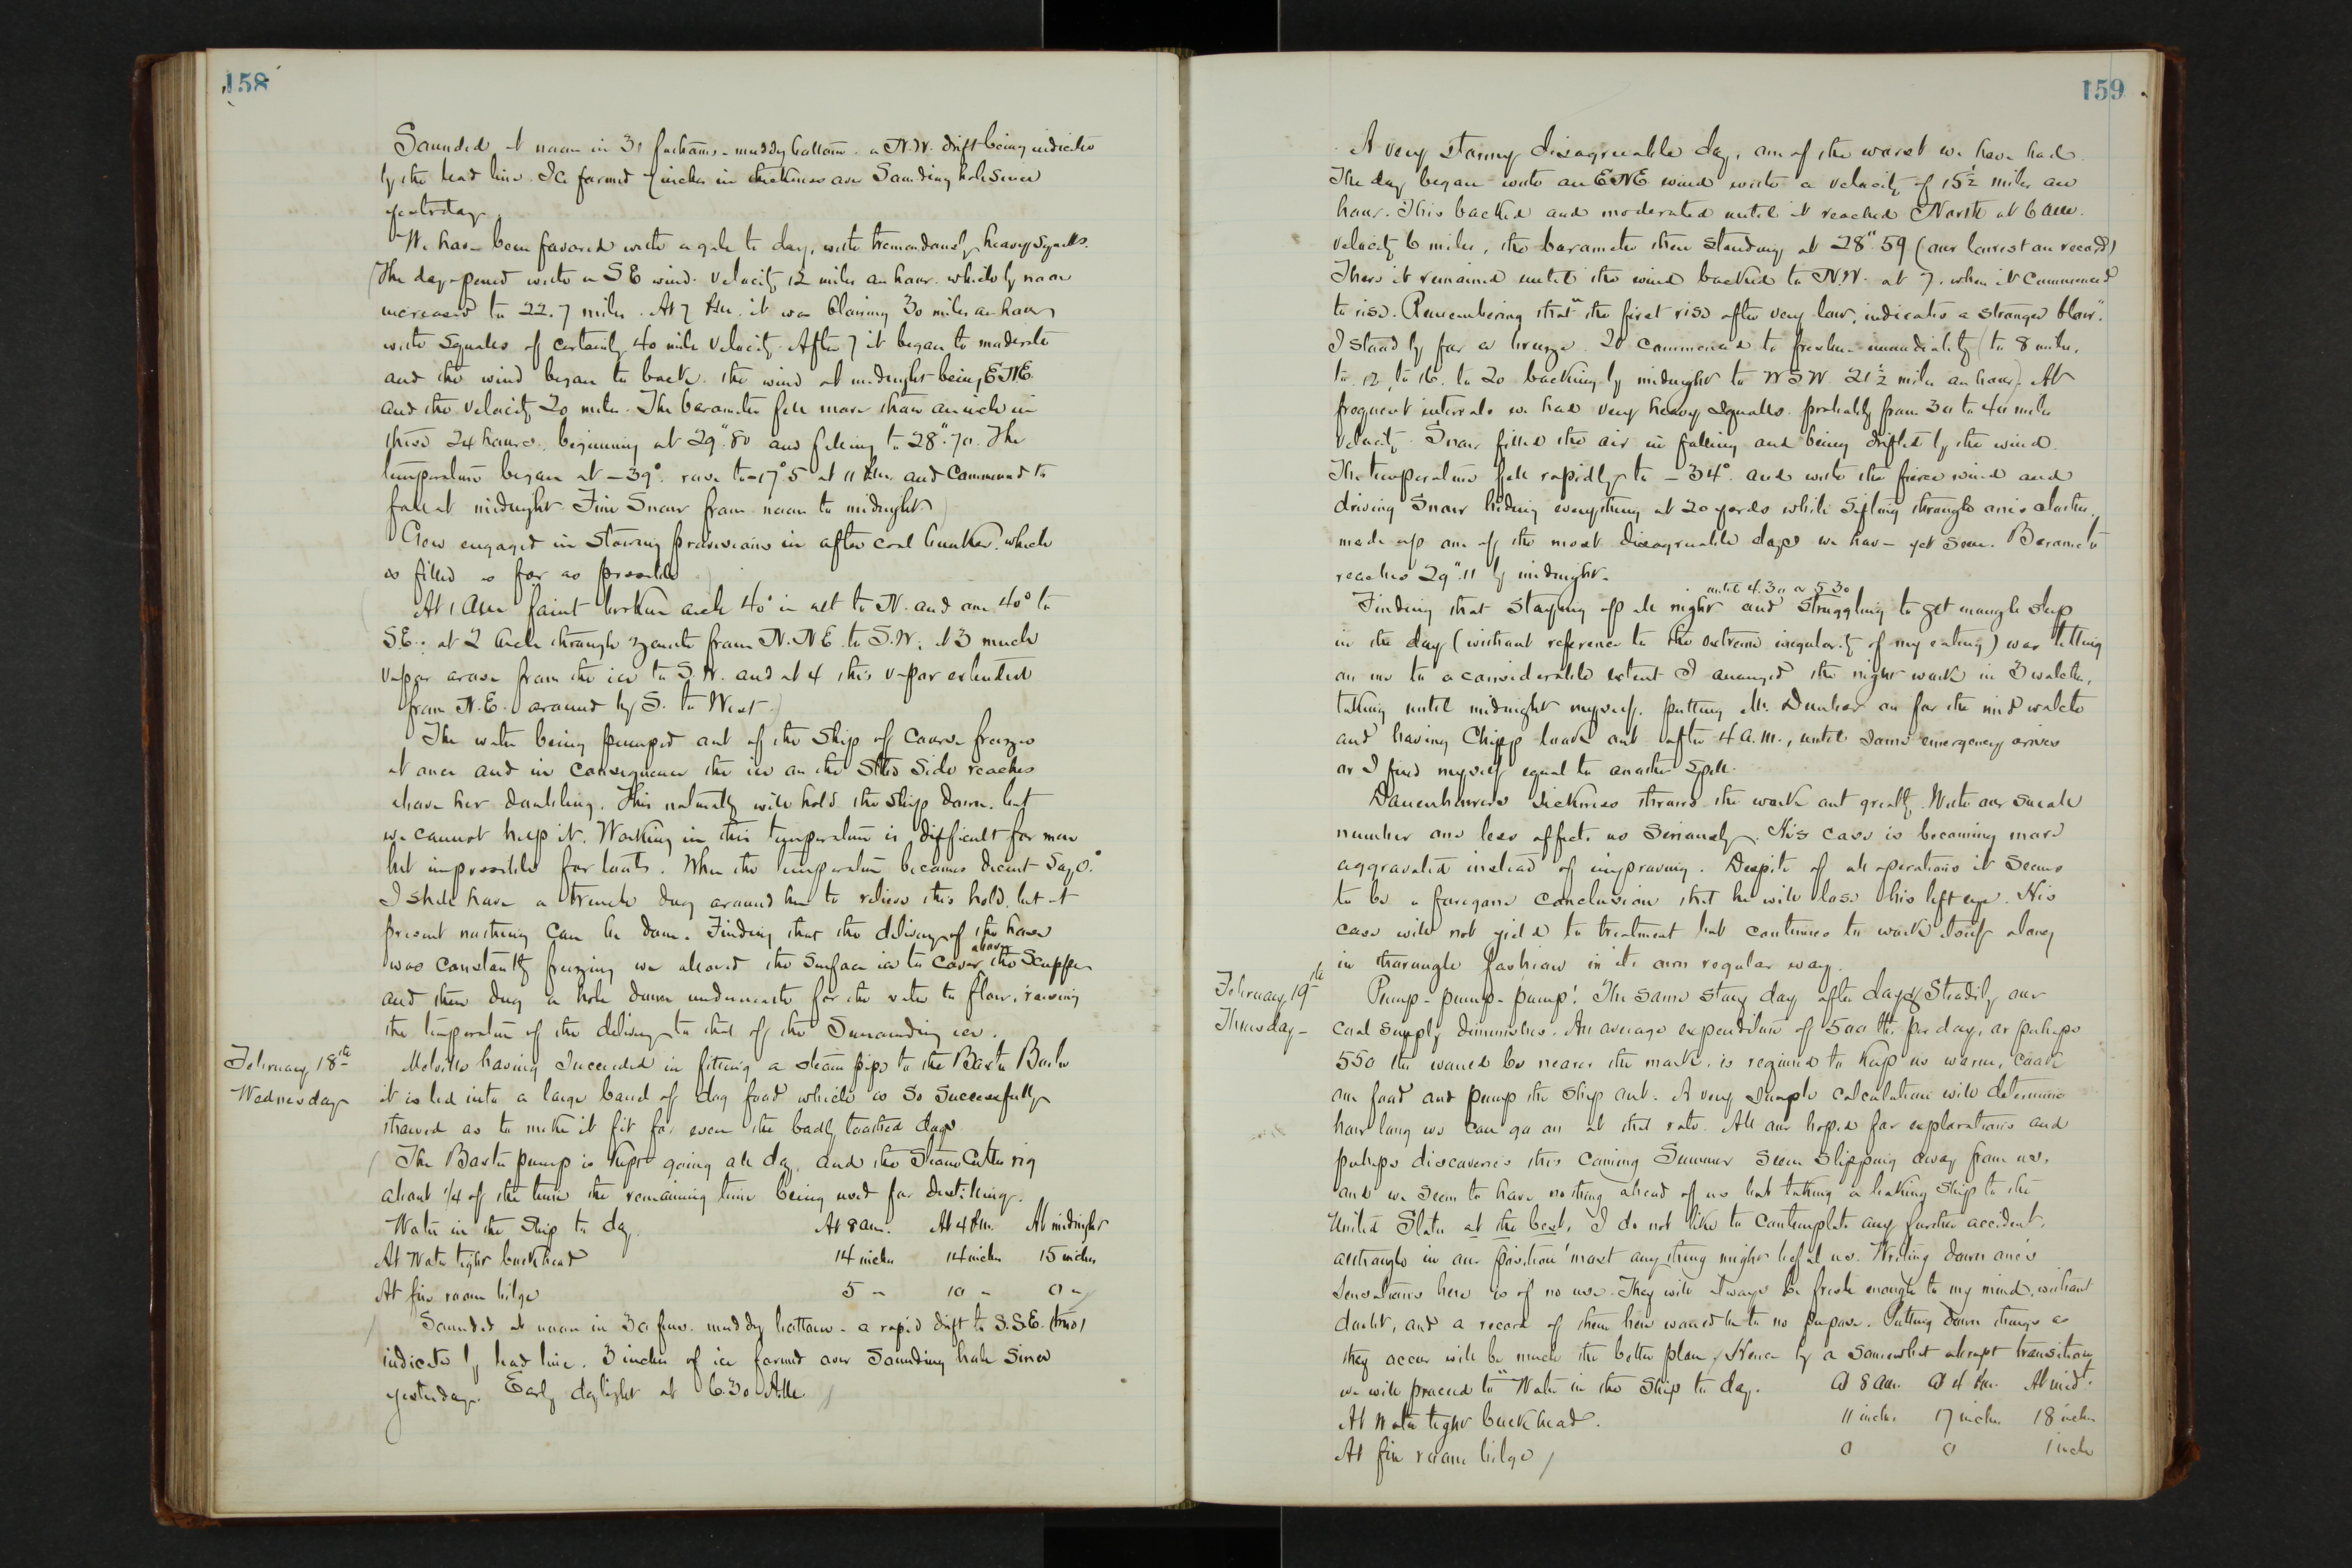 158
Sounded at noon in 31 fathoms - muddy bottom - a N.W. drift being indicated
by the lead line. Ice formed 7 inches in thickness over Sounding hole since
yesterday.
We have been favored with a gale to day, with tremendously heavy squalls.
The day opened with a S E wind. Velocity 12 miles an hour. which by noon
increased to 22.7 miles. At 7 P.M. it was blowing 30 miles an hour
with squalls of certainly 40 mile velocity. After 7 it began to moderate
and the wind began to back. the wind at midnight being ENE
and the velocity 20 miles. The barometer fell more than an inch in
these 24 hours. beginning at 29".80 and falling to 28".70. The
temperature began at -39°. rose to -17°.5 at 11 P.M. and commenced to
fall at midnight. Fine Snow from noon to midnight.
Crew engaged in stowing provisions in after coal bunker. which
is filled as far as possible
At 1 A.M. faint broken arch 40° in alt to N. and one 40° to
S.E.; at 2 Arch through zenith from N.NE. to S.W; at 3 much
vapor arose from the ice to S.W. and at 4 this vapor extended
from N.E. around by S. to West.
The water being pumped out of the Ship of course freezes
at once and in consequence the ice on the Stbd side reaches
above her doubling. This naturally will hold the ship down. but
we cannot help it. Working in this temperature is difficult for men
but impossible for tools. When the temperature becomes decent Say 0.°
I shall have a trench dug around her to relieve this hold. but at
present nothing can be done. Finding that the delivery of the hose
was constantly freezing we allowed the surface ice to cover above the Scupper
and then dug a hole down underneath for the water to flow, raising
the temperature of the delivery to that of the surrounding ice.
February 18th
Wednesday
Melville having succeeded in fitting a steam pipe to the Baxter Boiler
it is led into a large barrel of dog food which is so successfully
thawed as to make it fit for even the badly toothed dogs.
The Baxter pump is kept going all day, and the Steam Cutter rig
about 1/4 of the time the remaining time being used for distilling.
Water in the Ship to day At 8 am. At 4 P.M. At midnight
At Water tight bulkhead 14 inches 14 inches 15 inches
At fire room bilge 5 " 10 " 0 "
Sounded at noon in 30 fms. muddy bottom - a rapid drift to S.SE. (true)
indicated by lead line. 3 inches of ice formed over Sounding hole since
yesterday. Early daylight at 6.30 A.M.
159
A very stormy disagreeable day, one of the worst we have had.
The day began with an ENE wind with a velocity of 15½ miles an
hour. This backed and moderated until it reached North at 6 a.m.
velocity 6 miles, the barometer then standing at 28".59 (our lowest on record)
There it remained until the wind backed to N.W. at 7. when it commenced
to rise. Remembering that "the first rise after very low, indicates a stronger blow".
I stood by for a breeze. It commenced to freshen immediately (to 8 miles,
to 12, to 16, to 20 backing by midnight to W S W. 21½ miles an hour). At
frequent intervals we had very heavy squalls. probably from 30 to 40 miles
velocity. Snow filled the air in falling and being drifted by the wind.
The temperature fell rapidly to -34°. and with the fierce wind and
driving snow hiding everything at 20 yards while sifting through one's clothes.
made up one of the most disagreeable days we have yet seen. Barometer
reaches 29".11 by midnight.
Finding that staying up all night until 4.30 or 5.30 and struggling to get enough sleep
in the day (without reference to the extreme irregularity of my eating) was telling
on me to a considerable extent I arranged the night work in 3 watches,
taking until midnight myself. putting Mr. Dunbar on for the mid watch
and having Chipp look out after 4 a.m., until some emergency arises
or I find myself equal to another spell.
Danenhower's sickness throws the work out greatly. With our small
number one less affects us seriously. His case is becoming more
aggravated instead of improving. Despite of all operations it seems
to be a foregone conclusion that he will lose his left eye. His
case will not yield to treatment but continues to work itself along
in thorough fashion in its own regular way.
February 19th
Thursday -
Pump - pump - pump! The same story day after day. Steadily our
coal supply diminishes. An average expenditure of 500 lbs. per day, or perhaps
550 lbs would be nearer the mark. is required to keep us warm, cook
our food and pump the ship out. A very simple calculation will determine
how long we can go on at that rate. All our hopes for explorations and
perhaps discoveries this coming Summer seem slipping away from us.
and we seem to have nothing ahead of us but taking a leaking ship to the
United States at the best. I do not like to contemplate any further accident.
although in our position 'most anything might befal us. Writing down one's
sensations here is of no use. They will always be fresh enough to my mind, without
doubt, and a record of them here would be to no purpose. Putting down things as
they occur will be much the better plan. Hence by a somewhat abrupt transition
we will proceed to "Water in the Ship to day. @ 8 am. @ 4 P.M. At mid't.
At Water tight bulkhead. 11 inches. 17 inches. 18 inches
At fire room bilge 0 0 1 inch